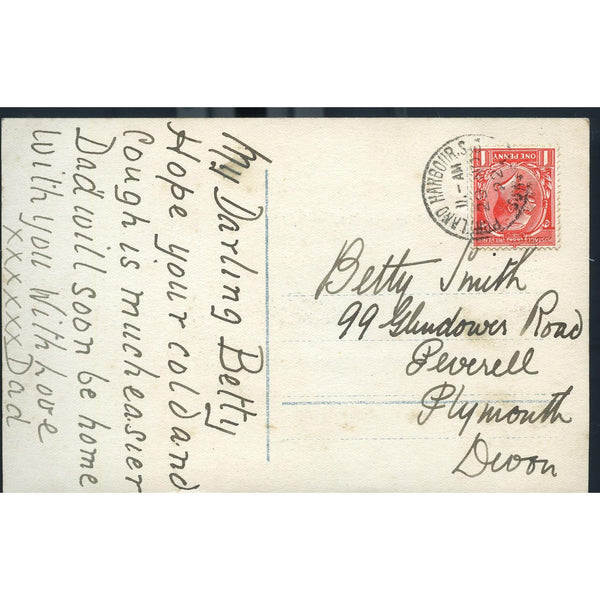 My Darling Betty
Hope your cold and
Cough is much easier
Dad will soon be home
With you With Love
xxxxxx Dad
PORTLAND HARBOUR.S.O
11-AM
ONE PENNY
1 1
Betty Smith
99 Glendower Road
Peverell
Plymouth
Devon